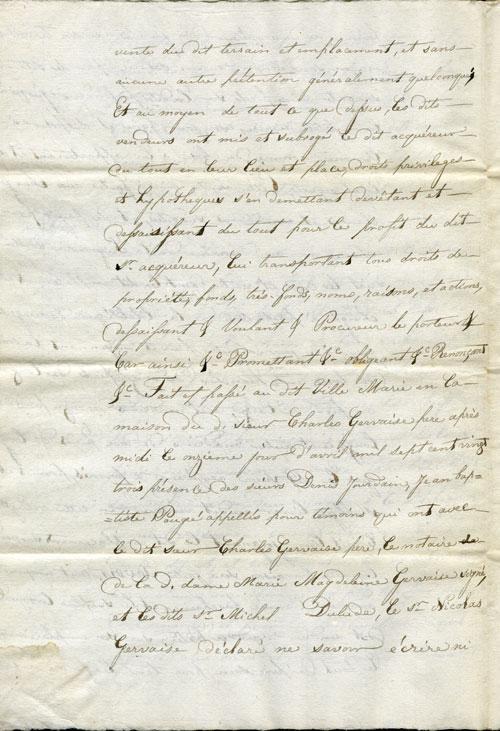 vente du dit terrain et emplacement, et sans
aucune autre prétention généralement quelconque,
Et au moyen de tout ce que dessus, les dits
vendeurs ont mis et subrogé le dit acquéreur
du tout en leur lieu et place, droits privileges
et hypotheques s'en demettant devêtant et
dessaisissant du tout pour le profit du dit
Sr. acquéreur, lui transportent tous droits de
propriétés, fonds, très-fonds, noms, raisons, et actions,
dessaisissant & Voulant & Procureur le porteur &
Car ainsi &c Promettant &c obligeant &c Renonçant
&c Fait et passé au dit Ville Marie en la
maison du d. sieur Charles Gervaise pere après
midi le onzieme jour d'avril mil sept cent vingt
trois présence des sieurs Denis Jourdain, Jean bap-
-tiste Pougé appellés pour témoins qui ont avec
le dit sieur Charles Gervaise pere, le notaire
de la d. dame Marie Magdeleine Gervaise signé,
et les dits Sr. Michel le Sr. Nicolas
Gervaise déclaré ne savoir écrire ni